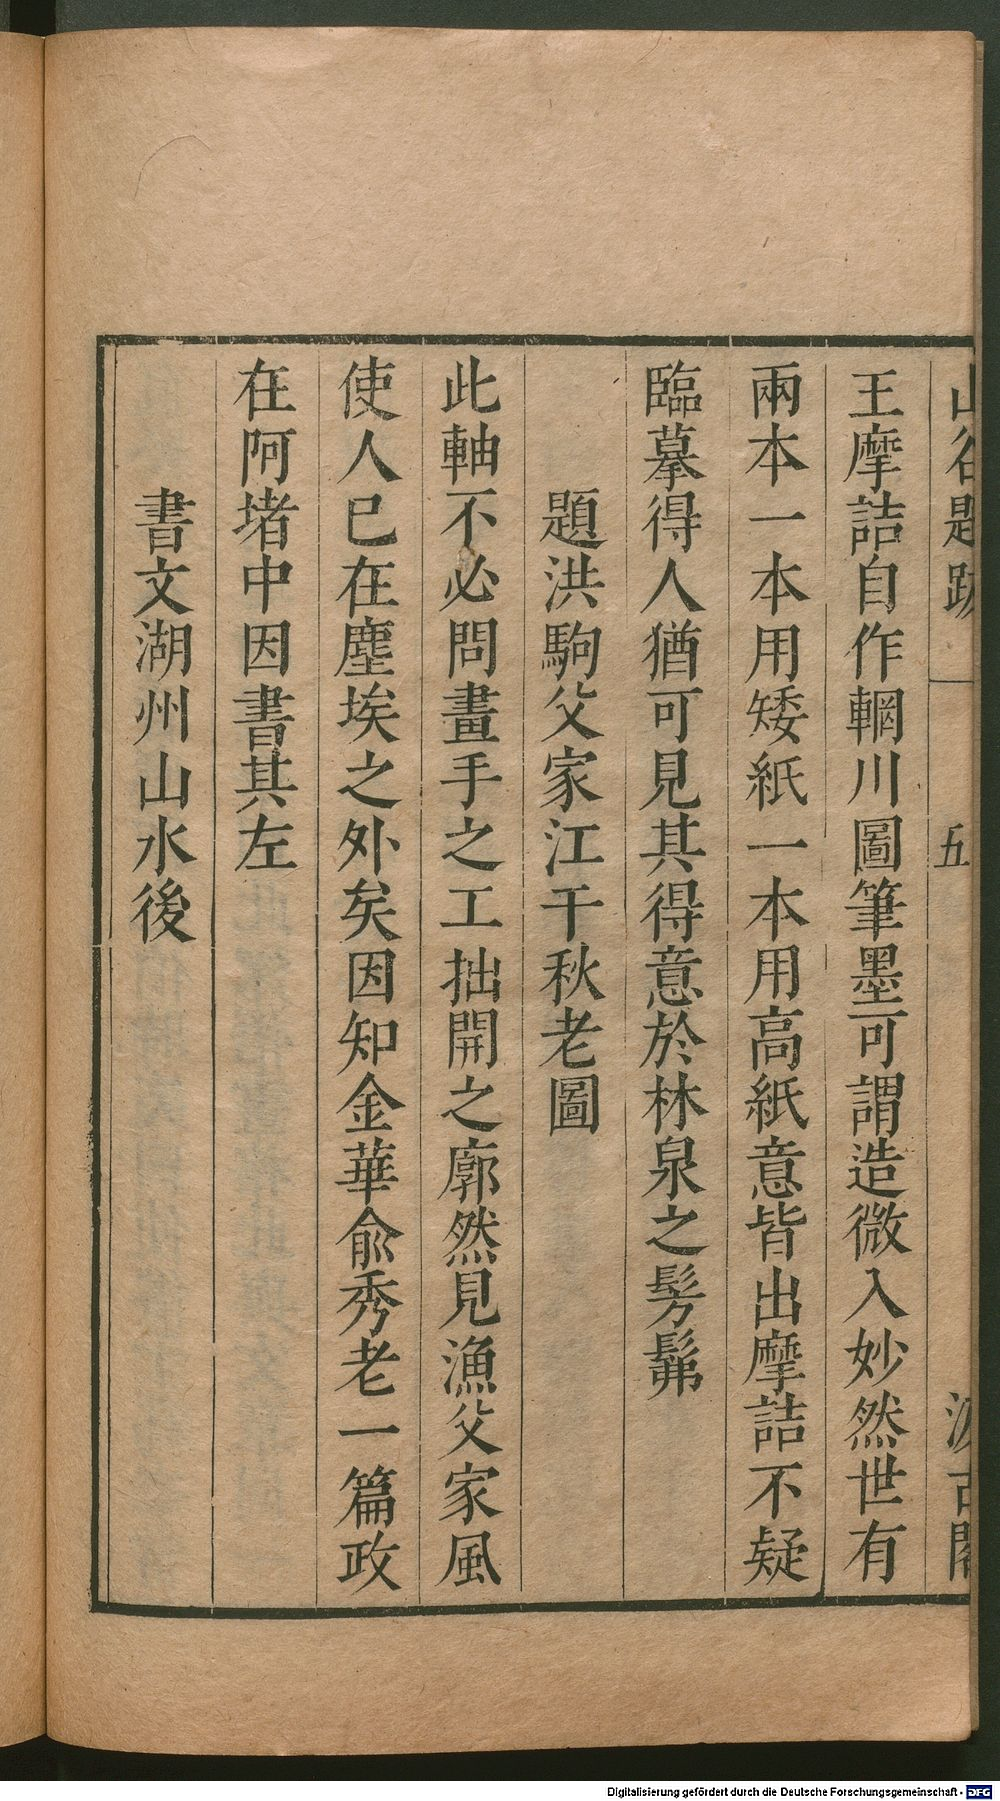 山谷題跋 五 汲古閣
王摩詰自作輞川圖筆墨可謂造微入妙然世有
兩本一本用矮紙一本用高紙意皆出摩詰不疑
臨摹得人猶可見其得意於林泉之髣髴
題洪駒父家江干秋老圖
此軸不必問畫手之工拙開之廓然見漁父家風
使人已在塵埃之外矣因知金華俞秀老一篇政
在阿堵中因書其左
書文湖州山水後
Digitalisierung gefördert durch die Deutsche Forschungsgemeinschaft - DFG